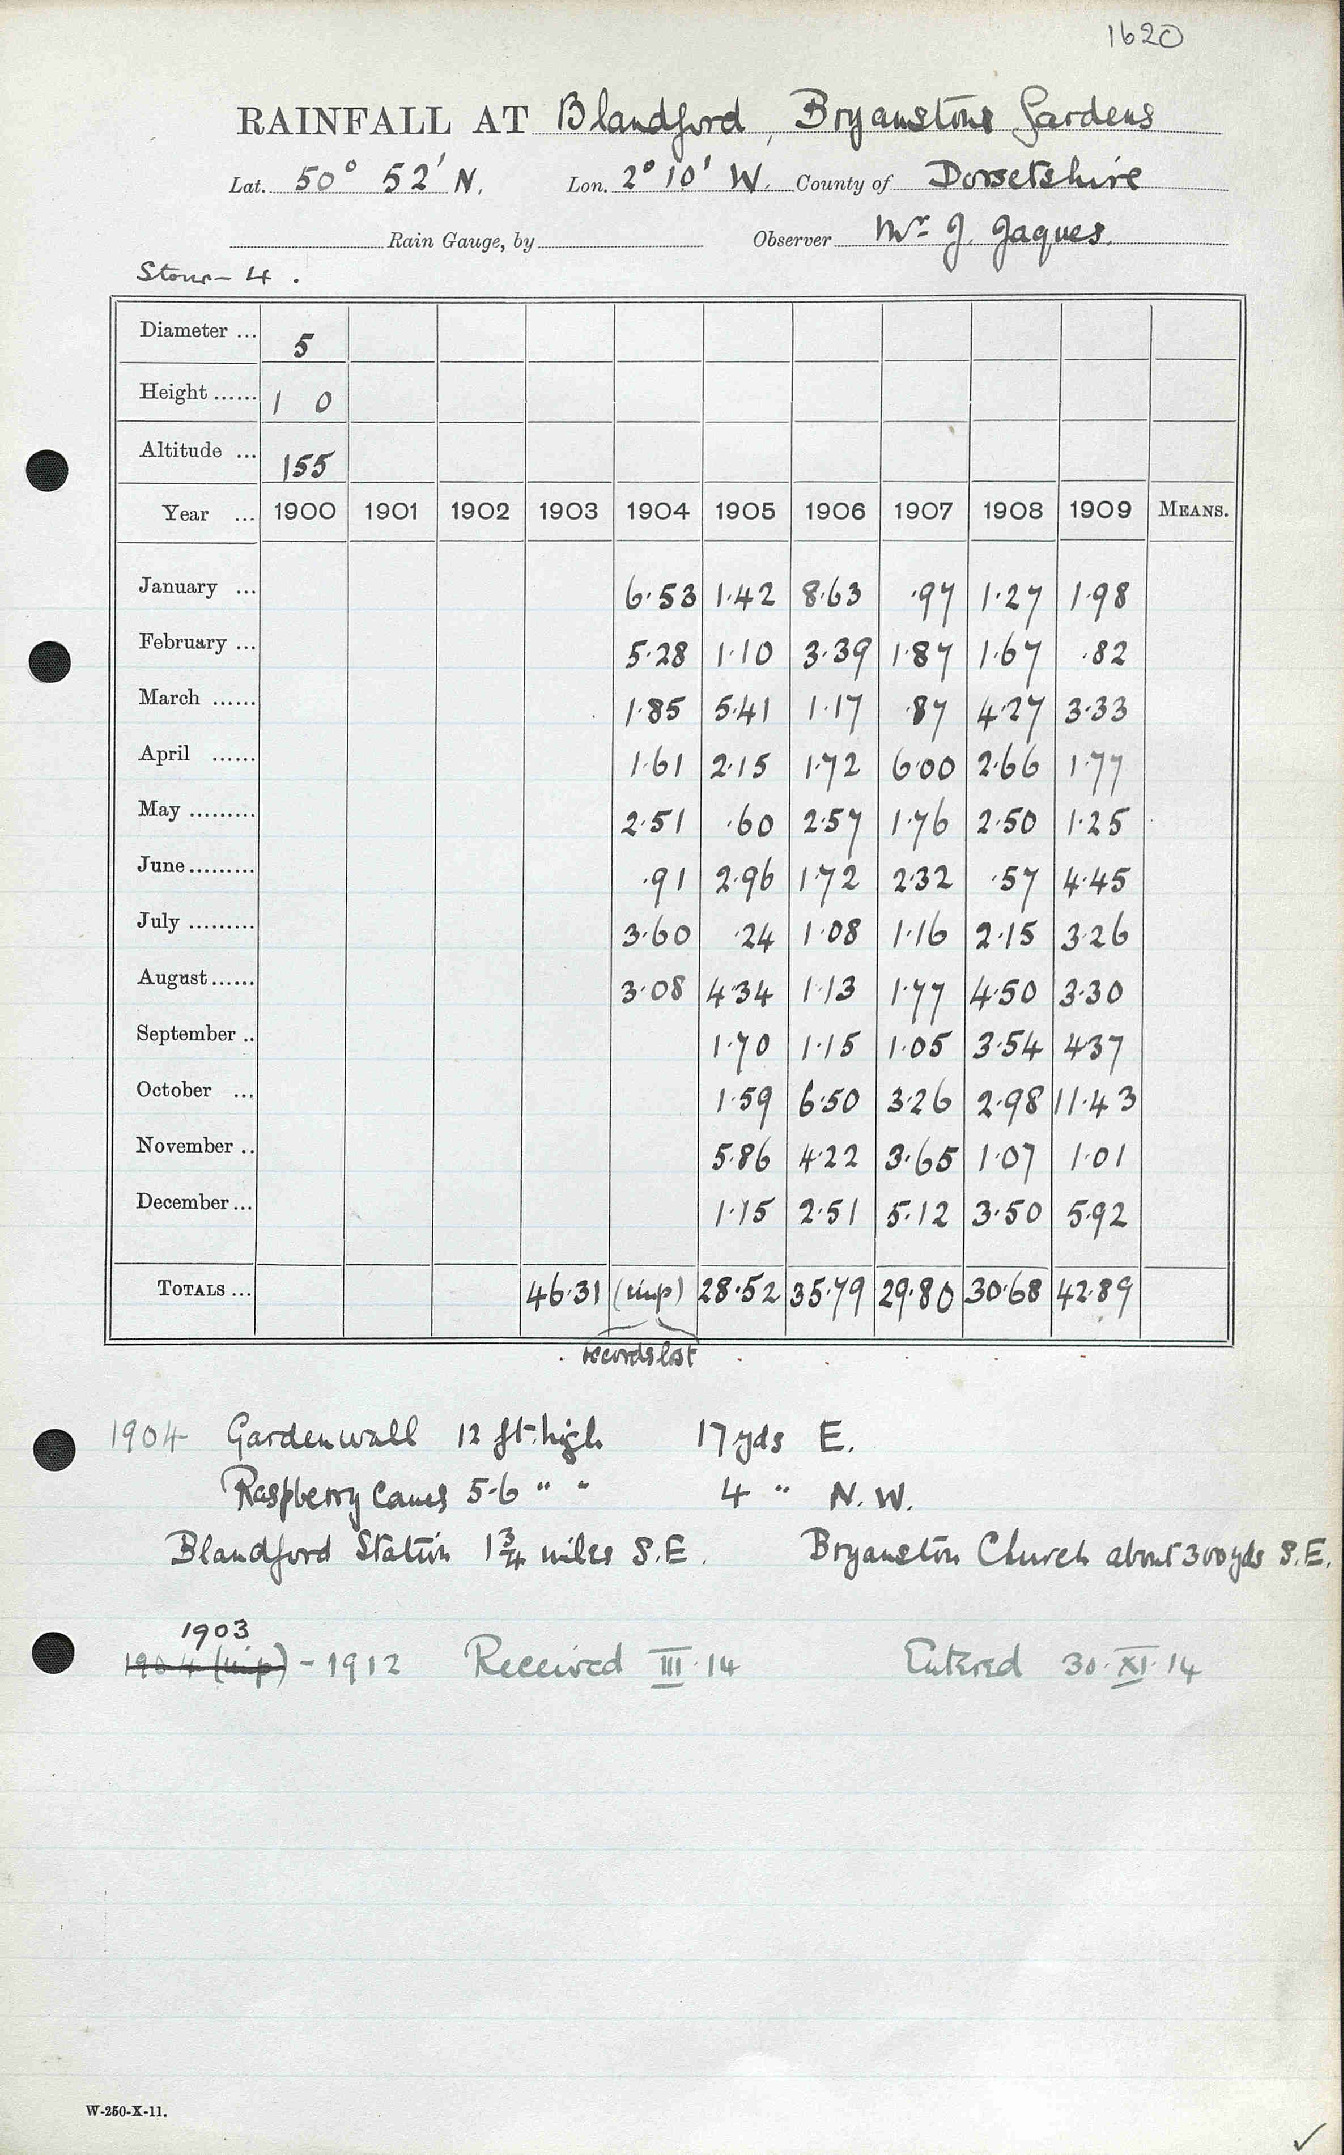 1620
RAINFALL AT Blandford, Bryanstone Gardens
Lat. 50° 52' N. Lon. 2° 10' W. County of Dorsetshire
Rain Gauge, by Observer Mr. J. Jaques.
Stour - 4.
Diameter ... 5
Height ...... 1 0
Altitude ... 155
Year ... 1900 1901 1902 1903 1904 1905 1906 1907 1908 1909 MEANS.
January ... 6.53 1.42 8.63 .97 1.27 1.98
February ... 5.28 1.10 3.39 1.87 1.67 .82
March ...... 1.85 5.41 1.17 .87 4.27 3.33
April ...... 1.61 2.15 1.72 6.00 2.66 1.77
May ......... 2.51 .60 2.57 1.76 2.50 1.25
June ......... .91 2.96 1.72 2.32 .57 4.45
July ......... 3.60 .24 1.08 1.16 2.15 3.26
August ...... 3.08 4.34 1.13 1.77 4.50 3.30
September .. 1.70 1.15 1.05 3.54 4.37
October ... 1.59 6.50 3.26 2.98 11.43
November .. 5.86 4.22 3.65 1.07 1.01
December ... 1.15 2.51 5.12 3.50 5.92
TOTALS ... 46.31 (imp) 28.52 35.79 29.80 30.68 42.89
records lost
1904 Garden wall 12 ft. high 17 yds E.
Raspberry Canes 5-6 " " 4 " N.W.
Blandford Station 1¾ miles S.E. Bryanston Church about 300 yds S.E.
1903
1904 (imp) - 1912 Received III.14 Entered 30.XI.14
W-250-X-11.